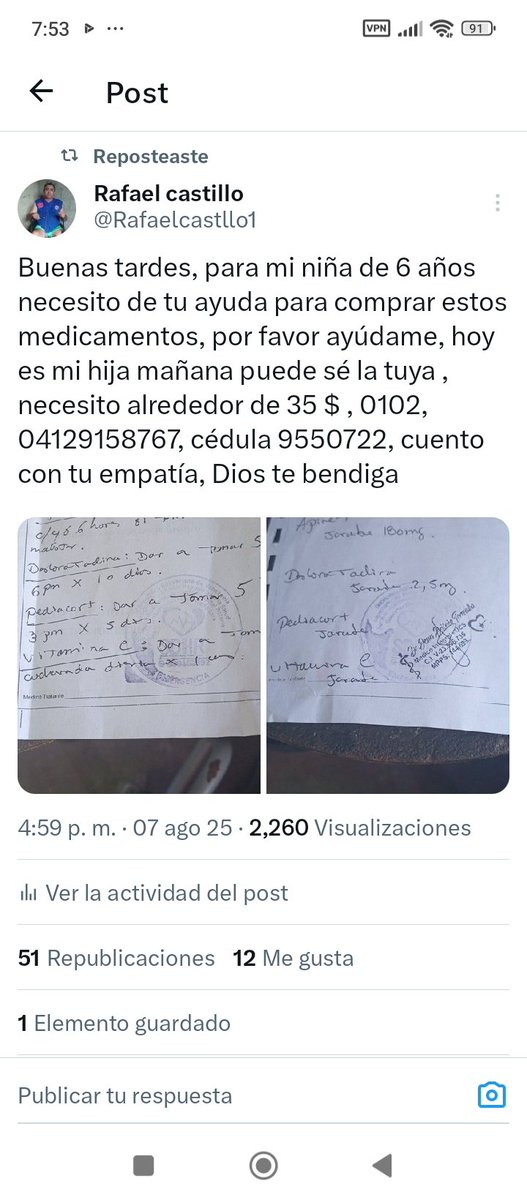 7:53
VPN
91
Post
Reposteaste
Rafael castillo
@Rafaelcastllo1
Buenas tardes, para mi niña de 6 años
necesito de tu ayuda para comprar estos
medicamentos, por favor ayúdame, hoy
es mi hija mañana puede sé la tuya ,
necesito alrededor de 35 $ , 0102,
04129158767, cédula 9550722, cuento
con tu empatía, Dios te bendiga
6 hora
Dar a Tomar 5
6pm x 10 dias.
Pediacort: Dar a Tomar 5
3 pm x 5 dias.
Vitamina C: Dar a Tom
diaria x
Medico Tratante
EMERGENCIA
Jarabe 180mg.
Jarabe 2,5mg.
Pediacort
Jarabe
C
Jarabe
4:59 p. m. · 07 ago 25 · 2,260 Visualizaciones
Ver la actividad del post
51 Republicaciones 12 Me gusta
1 Elemento guardado
Publicar tu respuesta